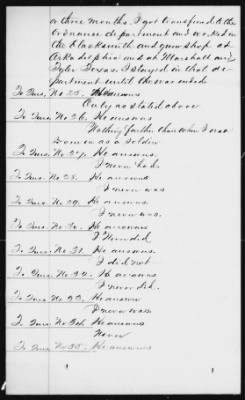 or three months. I got transfered to the
Ordnance department and worked in
the blacksmith and gun shop at
Arkadelphia and at Marshall and
Tyler Texas. I stayed in that de-
partment until the war ended
To Ques. No 25. He answers
Only as stated above
To Ques. No 26. He answers
Nothing further than when I was
a Soldier
To Ques. No 27. He answers.
I never had.
To Ques. No 28. He answers
I never was
To Ques. No 29. He answers.
I never was.
To Ques. No 30. He answers
I Never did.
To Ques. No 31. He answers.
I did not
To Ques. No 32. He answers
I never did.
To Ques. No 33. He answers
I never was
To Ques. No 34. He answers
Never
To Ques. No 35. He answers